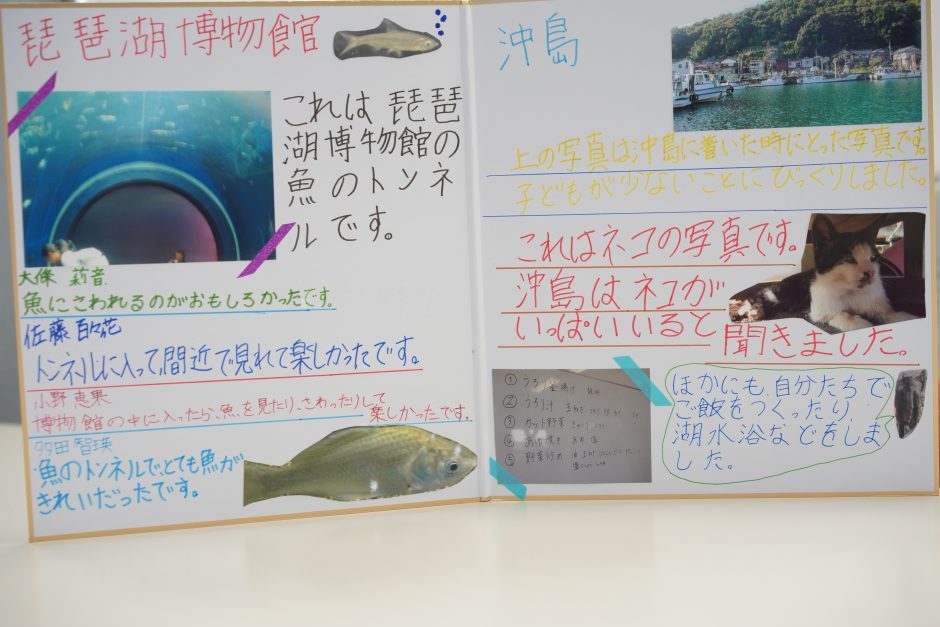 琵琶湖博物館
これは琵琶
湖博物館の
魚のトンネ
ルです。
大條 莉音
魚にさわれるのがおもしろかったです。
佐藤 百花
トンネルに入って、間近で見れて楽しかったです。
小野 恵果
博物館の中に入ったら、魚を見たり、さわったりして
楽しかったです。
多田 智瑛
魚のトンネルで、とても魚が
きれいだったです。
沖島
上の写真は沖島に着いた時にとった写真です。
子どもが少ないことにびっくりしました。
これはネコの写真です。
沖島はネコが
いっぱいいると
聞きました。
①
②
③ カット野菜
④
⑤ 野菜炒め
ほかにも、自分たちで
ご飯をつくったり、
湖水浴などをしま
した。